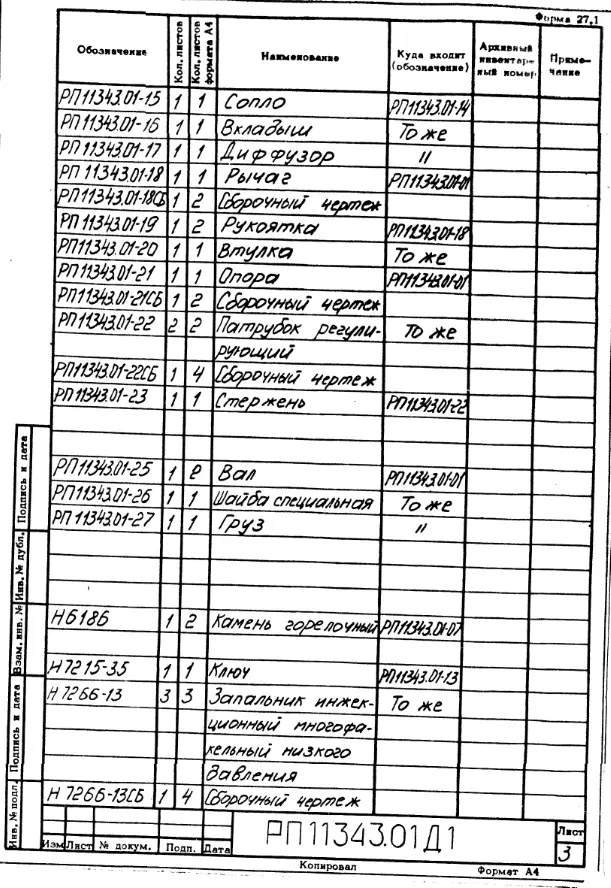 Форма 27.1
Обозначение Кол. листов Кол. листов формата А4 Наименование Куда входит (обозначение) Архивный инвентарный номер Примечание
РП11343.01-15 1 1 Сопло РП11343.01-14
РП11343.01-16 1 1 Вкладыш То же
РП11343.01-17 1 1 Диффузор "
РП11343.01-18 1 1 Рычаг РП11343.01-01
РП11343.01-18СБ 1 2 Сборочный чертеж
РП11343.01-19 1 2 Рукоятка РП11343.01-18
РП11343.01-20 1 1 Втулка То же
РП11343.01-21 1 1 Опора РП11343.01-01
РП11343.01-21СБ 1 2 Сборочный чертеж
РП11343.01-22 2 2 Патрубок регули- То же
рующий
РП11343.01-22СБ 1 4 Сборочный чертеж
РП11343.01-23 1 1 Стержень РП11343.01-22
РП11343.01-25 1 2 Вал РП11343.01-01
РП11343.01-26 1 1 Шайба специальная То же
РП11343.01-27 1 1 Груз "
Н6186 1 2 Камень горелочный РП11343.01-07
Н7215-35 1 1 Ключ РП11343.01-13
Н7266-13 3 3 Запальник инжек- То же
ционный многофа-
кельный низкого
давления
Н7266-13СБ 1 4 Сборочный чертеж
Инв. № подл. Подпись и дата Взам. инв. № Инв. № дубл. Подпись и дата
РП11343.01Д1
Лист
3
Изм Лист № докум. Подп. Дата
Копировал Формат А4